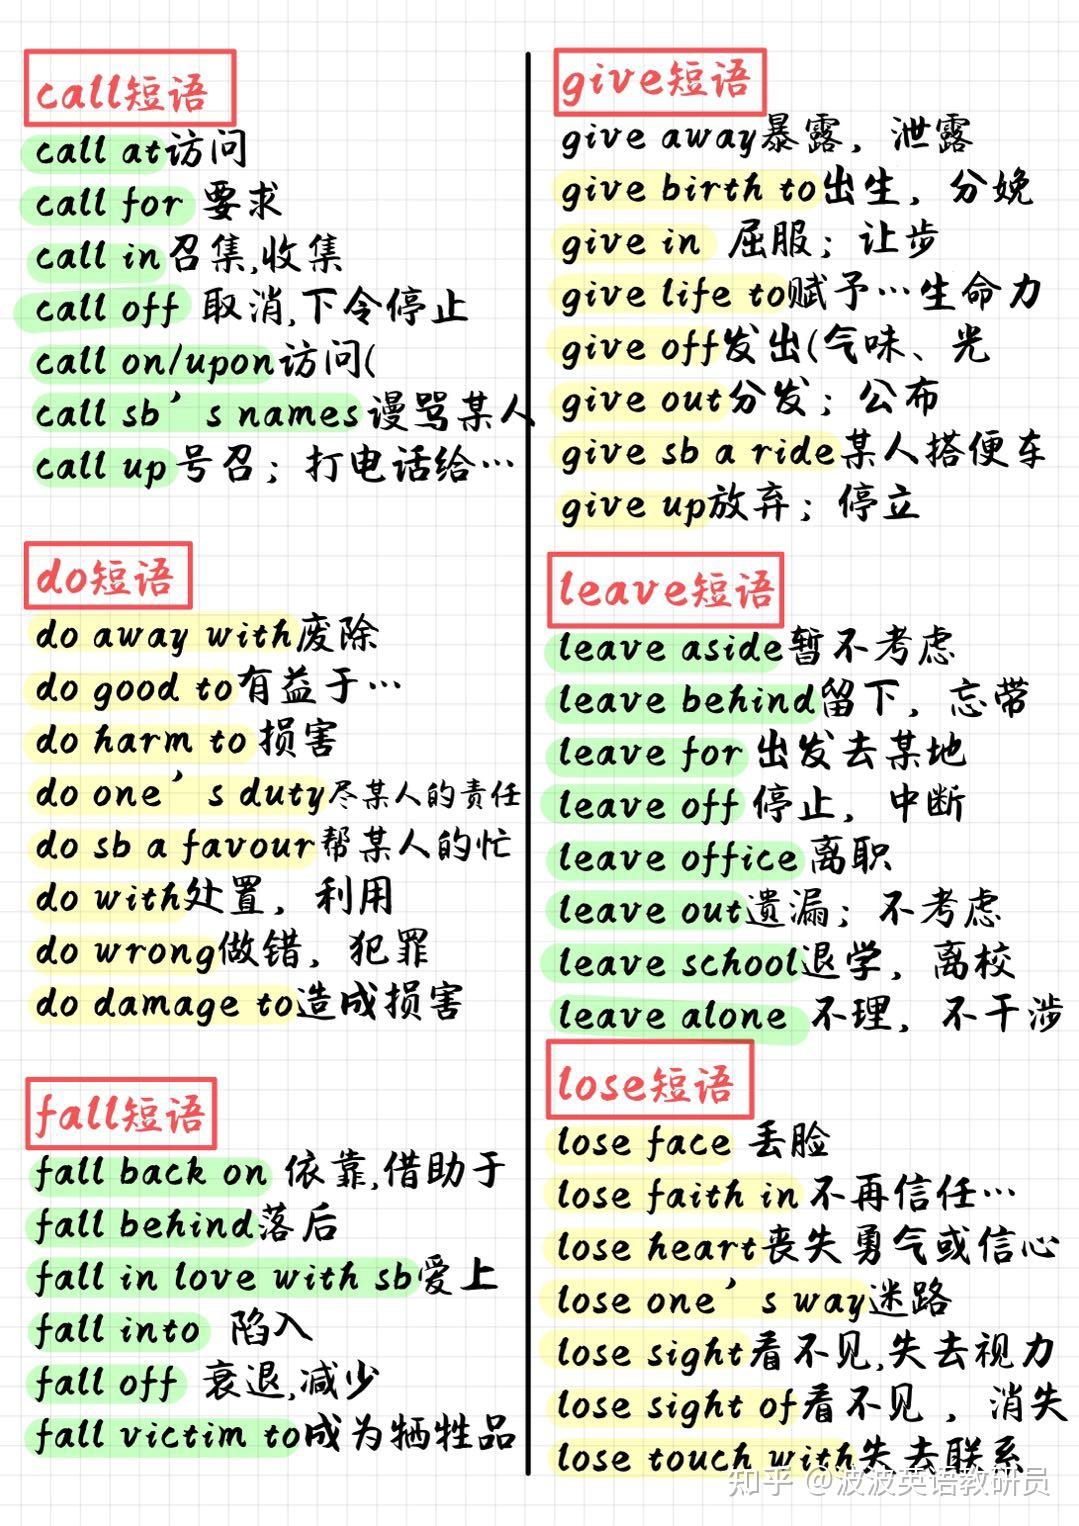 call短语
call at访问
call for 要求
call in召集,收集
call off 取消,下令停止
call on/upon访问(
call sb’s names谩骂某人
call up号召；打电话给…
do短语
do away with废除
do good to有益于…
do harm to损害
do one’s duty尽某人的责任
do sb a favour帮某人的忙
do with处置，利用
do wrong做错，犯罪
do damage to造成损害
fall短语
fall back on 依靠,借助于
fall behind落后
fall in love with sb爱上
fall into 陷入
fall off 衰退,减少
fall victim to成为牺牲品
give短语
give away暴露，泄露
give birth to出生，分娩
give in 屈服；让步
give life to赋予…生命力
give off发出(气味、光
give out分发；公布
give sb a ride某人搭便车
give up放弃；停立
leave短语
leave aside暂不考虑
leave behind留下，忘带
leave for 出发去某地
leave off 停止，中断
leave office离职
leave out遗漏；不考虑
leave school退学，离校
leave alone 不理，不干涉
lose短语
lose face 丢脸
lose faith in不再信任…
lose heart丧失勇气或信心
lose one’s way迷路
lose sight看不见,失去视力
lose sight of看不见，消失
lose touch with失去联系
知乎 @波波英语教研员